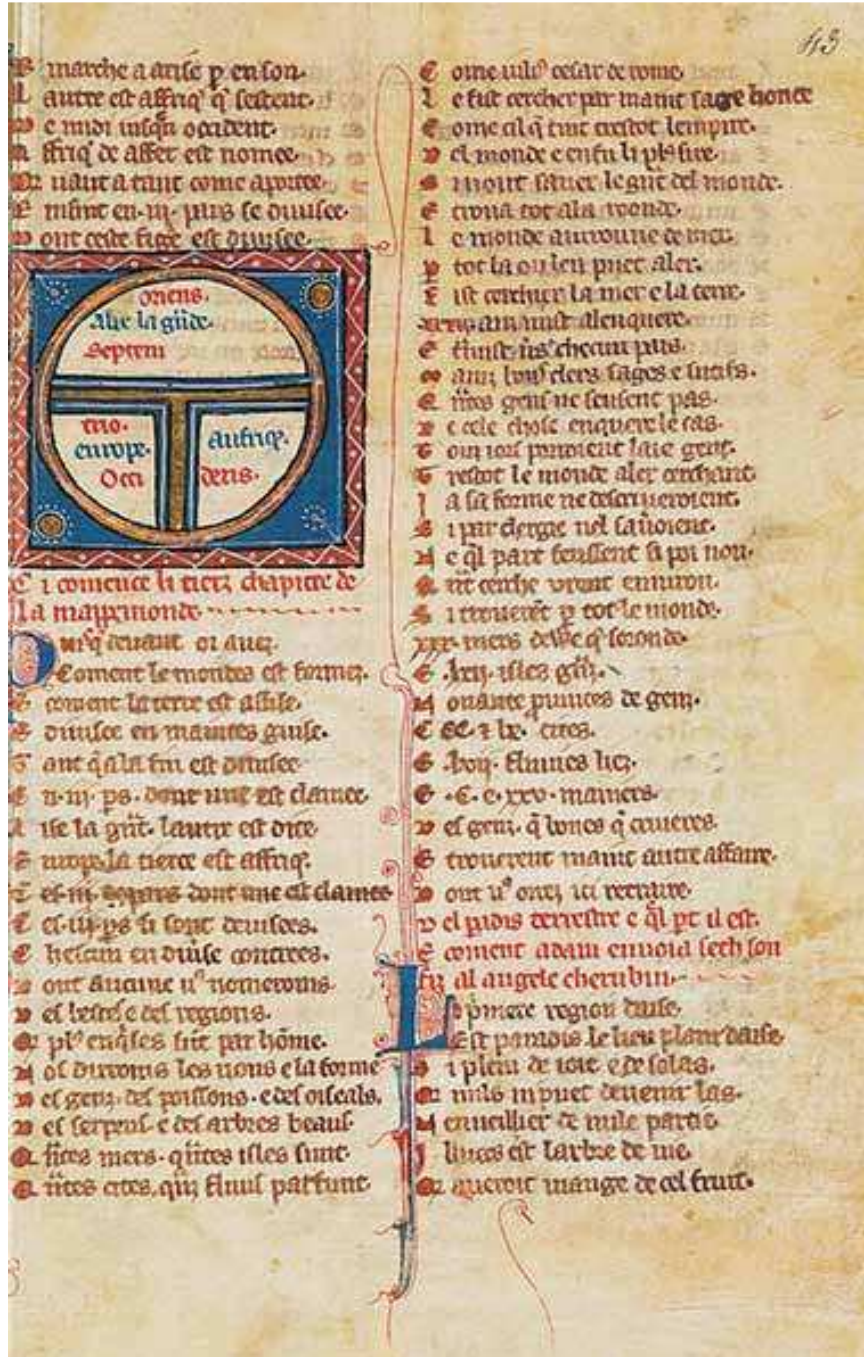 marche a arise p en son.
L autre est affriq̃ q̃ sestent.
e midi iusqũ occident.
A ffriq̃ de affer est nomee.
uaut a tant come aportee.
E nsint en .iij. pars se diuisee.
D ont ceste figẽ est diuisee.
oriens.
Asie la gñde.
Septem
trio.
europe.
Occi
aufriqe.
dens.
C i comence li tierz chapitre de
la mappemonde
deuant oi auez.
Coment le mondes est formez.
E coment la terre est assise.
E diuisee en maintes guise.
T ant q̃ a la fin est diuisee
E n .iij. ps. dont une est clamee
A ise la grñt. lautre est dite
E urope la tierce est affriq̃.
C es .iij. dont une est clamee
C es .iij. ps si sont deuisees.
C hescun en diuise contrees.
D ont aucune uˢ nomeroms
D es bestes e des regions.
pl᷒ enq̃ses sũt par hõme.
N os diroms les nons e la forme
D es genz. des poissons. e des oiseals.
D es serpens e des arbres beaus
Q ñtes mers. qñtes isles sunt
Q ñtes cites. qñz fluuis parfunt.
43
C ome iuliˢ cesar de rome.
L e fist cercher par maint sagre honce
C ome cil q̃ tint trestot lempire.
D el monde e en fu li pl᷒ sire.
mout sauer le gñt del monde.
E troua tot a la ronde.
L e monde auirone de mer.
P tot la ou len puet aler.
F ist cerchier la mer e la terre.
anz mist a lenquere.
E tinist chescun pais.
M anz bons clers sages e sutils.
Q ñtes gens ne seusent pas.
D e cele chose enquere le cas.
Q ui lors pooient laie gent.
T restot le monde aler cerchant
I a sa forme ne descriueroient.
S i par clergie nel sauoient.
N e q̃l part feussent si poi non.
Q ñt cerche urent enuiron.
S i trouerẽt p tot le monde.
xxx. mers
E .lxxij. isles gñz.
N onante prinices de genz.
C CC. 7 lx. cites.
E .lvij. fluuies liez.
E .C. e. xxv. manieres.
D es genz. q̃ bones q̃ crueres.
E trouerent maint autre affaire.
D ont uˢ orez ici retraire.
D el pidis terrestre e q̃l pt il est.
E coment adam enuoia seth son
fiz al angele cherubin.
L a pmere region daise.
Est paradis le lieu plain daise.
S i plein de ioie. e de solas.
Q nuls ni puet deuenir las.
N e enueillier de nule partie
I lluecs est larbre de uie.
Q i aueroit mange de cel fruit.